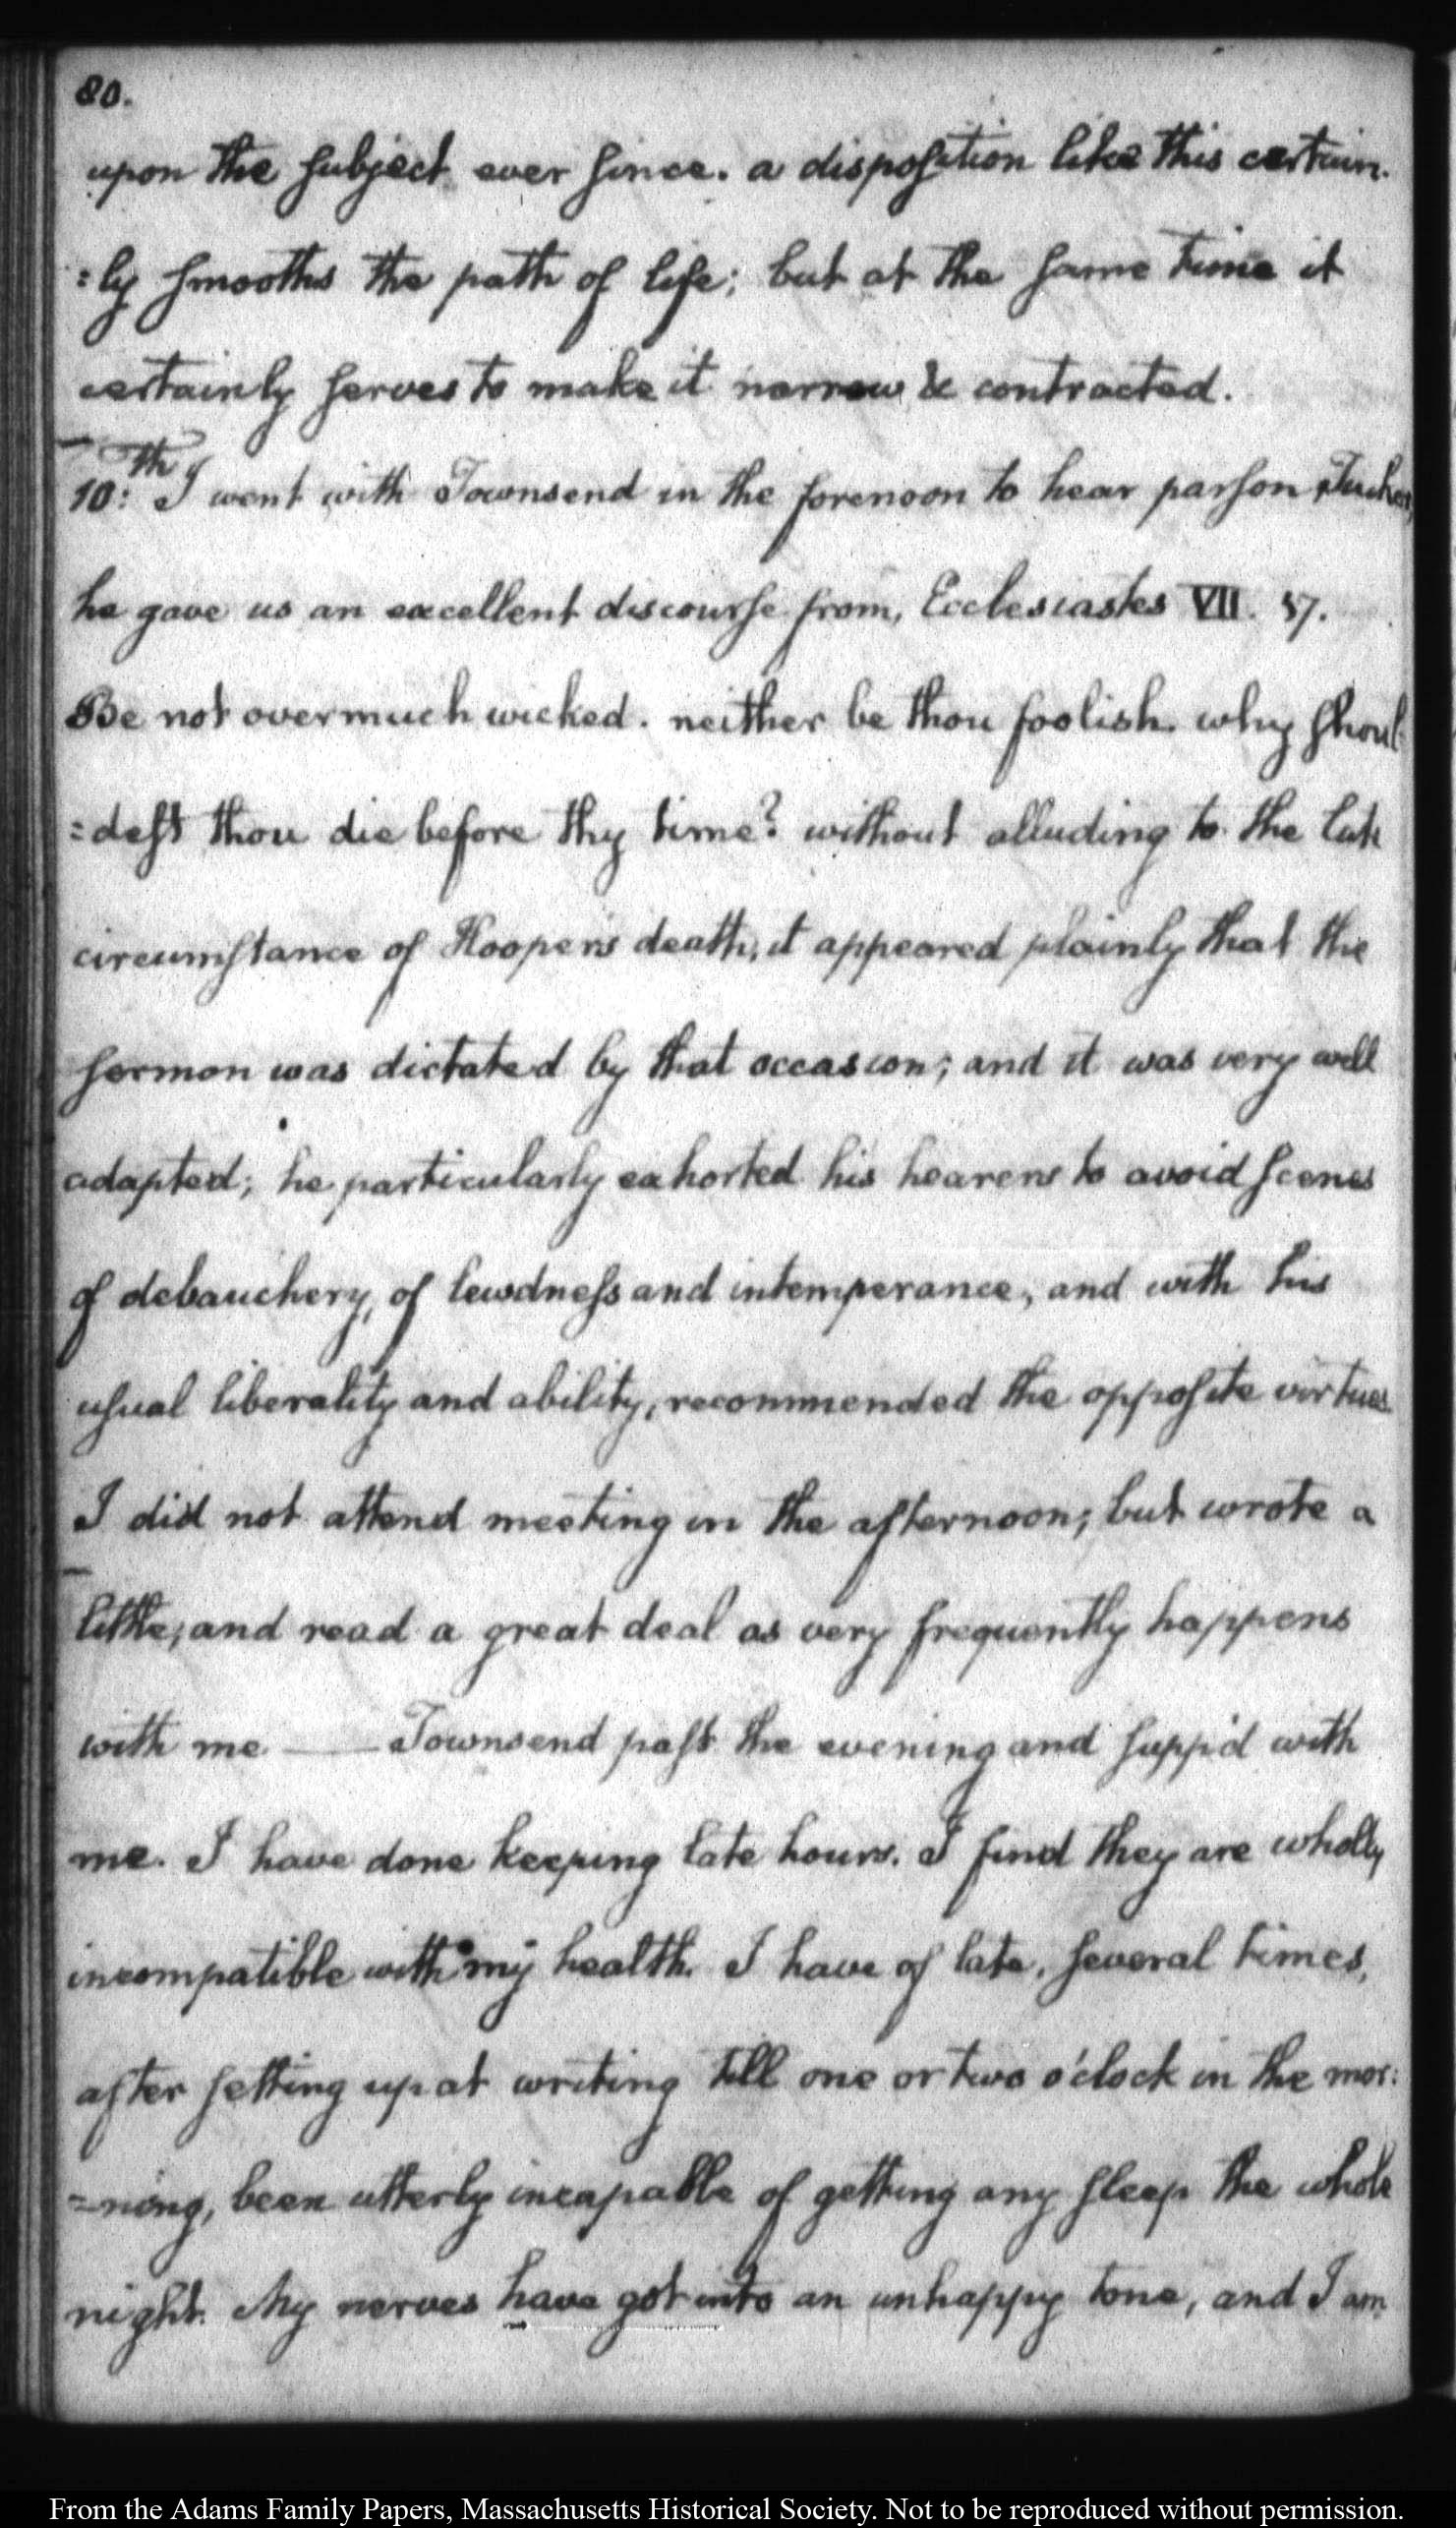 80.
upon the subject ever since. a disposition like this certain-
=ly smooths the path of life; but at the same time it
certainly serves to make it narrow & contracted.
10:th I went with Townsend in the forenoon to hear parson Tucker,
he gave us an excellent discourse from, Ecclesiastes VII. 17.
Be not overmuch wicked. neither be thou foolish. why shoul-
=dest thou die before thy time? without alluding to the late
circumstance of Hooper's death, it appeared plainly that the
sermon was dictated by that occasion; and it was very well
adapted; he particularly exhorted his hearers to avoid scenes
of debauchery, of lewdness and intemperance, and with his
usual liberality and ability, recommended the opposite virtues.
I did not attend meeting in the afternoon; but wrote a
little, and read a great deal as very frequently happens
with me. —— Townsend past the evening and supp'd with
me. I have done keeping late hours. I find they are wholly
incompatible with my health. I have of late, several times,
after setting up at writing till one or two o'clock in the mor:
=ning, been utterly incapable of getting any sleep the whole
night. My nerves have got into an unhappy tone, and I am
From the Adams Family Papers, Massachusetts Historical Society. Not to be reproduced without permission.